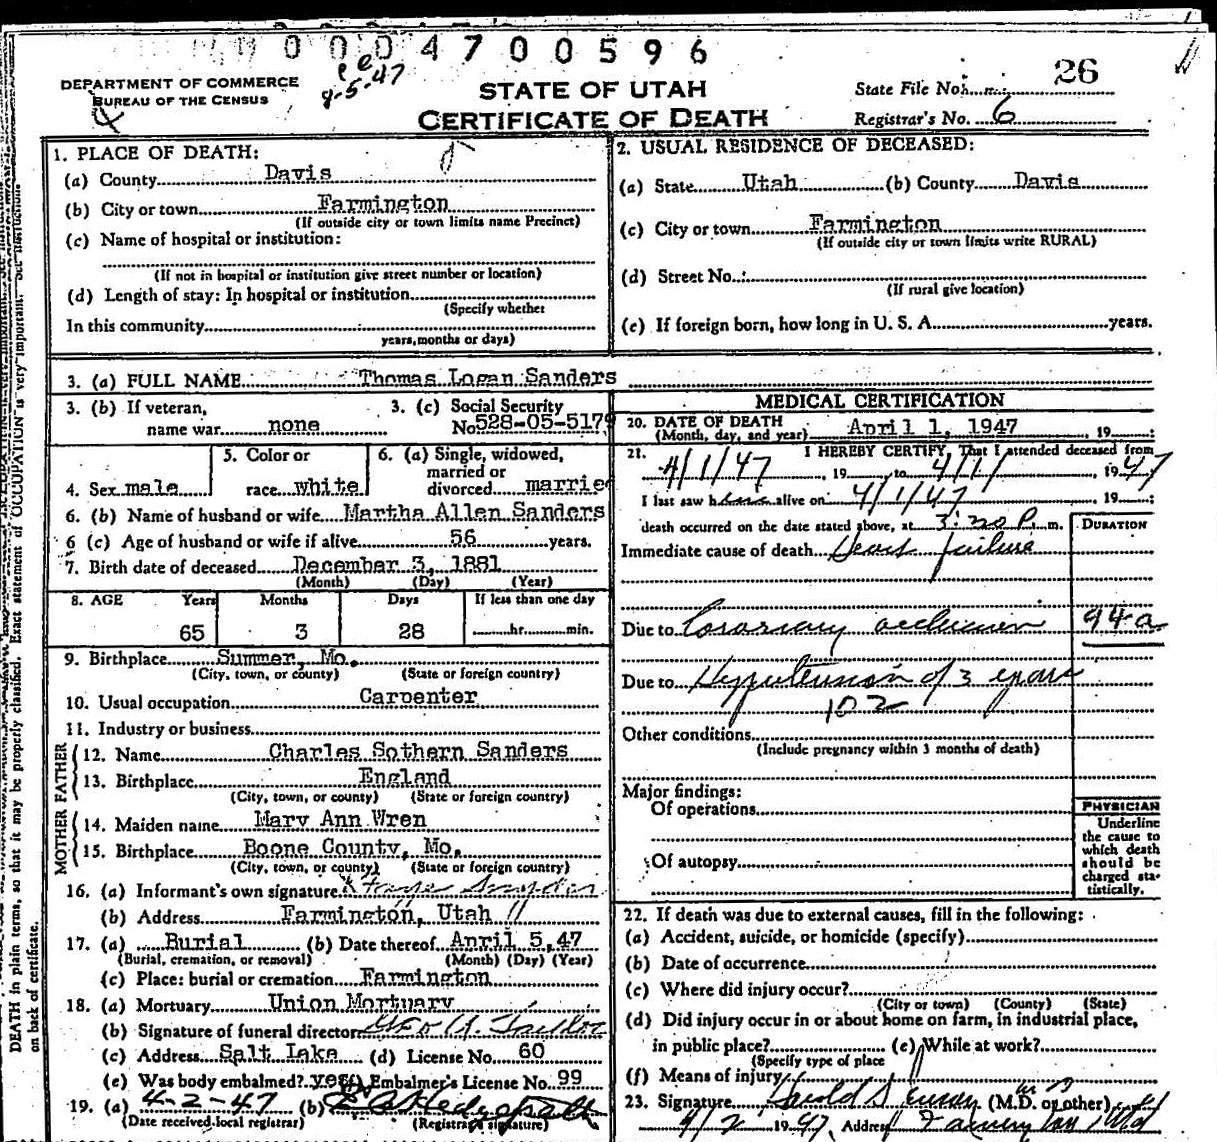 0004700596
DEPARTMENT OF COMMERCE
BUREAU OF THE CENSUS
4-5-47
STATE OF UTAH
CERTIFICATE OF DEATH
State File No. 26
Registrar's No. 6
1. PLACE OF DEATH:
(a) County Davis
(b) City or town Farmington
(If outside city or town limits name Precinct)
(c) Name of hospital or institution:
(If not in hospital or institution give street number or location)
(d) Length of stay: In hospital or institution
(Specify whether
In this community
years, months or days)
2. USUAL RESIDENCE OF DECEASED:
(a) State Utah (b) County Davis
(c) City or town Farmington
(If outside city or town limits write RURAL)
(d) Street No.
(If rural give location)
(e) If foreign born, how long in U. S. A. years.
3. (a) FULL NAME Thomas Logan Sanders
3. (b) If veteran, name war none
3. (c) Social Security No. 528-05-5179
4. Sex male
5. Color or race white
6. (a) Single, widowed, married or divorced marrie
6. (b) Name of husband or wife Martha Allen Sanders
6 (c) Age of husband or wife if alive 56 years.
7. Birth date of deceased December 3, 1881
(Month) (Day) (Year)
8. AGE Years Months Days If less than one day
65 3 28 hr. min.
9. Birthplace Summer, Mo.
(City, town, or county) (State or foreign country)
10. Usual occupation Carpenter
11. Industry or business
FATHER
12. Name Charles Sothern Sanders
13. Birthplace England
(City, town, or county) (State or foreign country)
MOTHER
14. Maiden name Mary Ann Wren
15. Birthplace Boone County, Mo.
(City, town, or county) (State or foreign country)
16. (a) Informant's own signature Snyder
(b) Address Farmington, Utah
17. (a) Burial (b) Date thereof April 5, 47
(Burial, cremation, or removal) (Month) (Day) (Year)
(c) Place: burial or cremation Farmington
18. (a) Mortuary Union Mortuary
(b) Signature of funeral director
(c) Address Salt Lake (d) License No. 60
(e) Was body embalmed? yes Embalmer's License No. 99
19. (a) 4-2-47 (b)
(Date received local registrar) (Registrar's signature)
MEDICAL CERTIFICATION
20. DATE OF DEATH
(Month, day, and year) April 1, 1947, 19
21. I HEREBY CERTIFY, That I attended deceased from
4/1/47, 19 to 4/1/ 1947
I last saw him alive on 4/1/47 19 ;
death occurred on the date stated above, at 3:20 P. m.
DURATION
Immediate cause of death Heart failure
Due to Coronary occlusion 94a
Due to Hypertension of 3 years
102
Other conditions
(Include pregnancy within 3 months of death)
Major findings:
Of operations
Of autopsy
PHYSICIAN
Underline
the cause to
which death
should be
charged sta-
tistically.
22. If death was due to external causes, fill in the following:
(a) Accident, suicide, or homicide (specify)
(b) Date of occurrence
(c) Where did injury occur?
(City or town) (County) (State)
(d) Did injury occur in or about home on farm, in industrial place,
in public place? (e) While at work?
(Specify type of place
(f) Means of injury
23. Signature (M.D. or other)
4/2 1947 Address Farmington
DEATH in plain terms, so that it may be properly classified. Exact statement of OCCUPATION is very important.
on back of certificate.